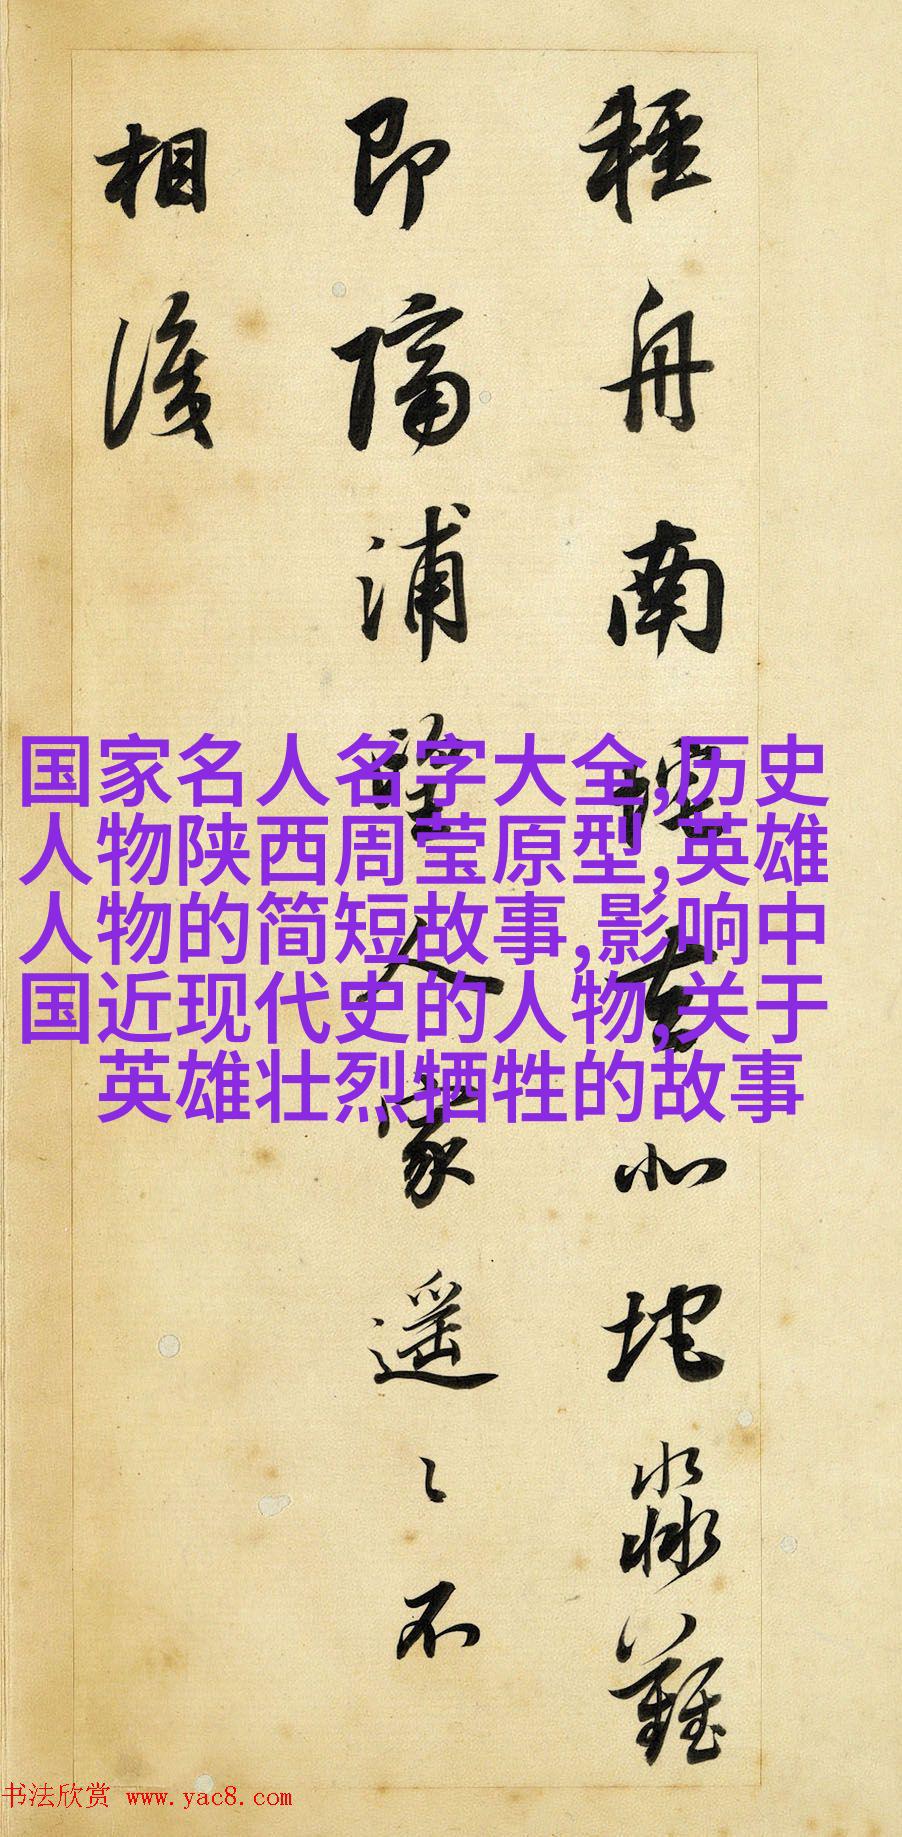 輕舟南垞去北垞淼難
即隔浦望人家遙〻不
相識
国家名人名字大全,历史
人物陕西周莹原型,英雄
人物的简短故事,影响中
国近现代史的人物,关于
英雄壮烈牺牲的故事
书法欣赏 www.yac8.com